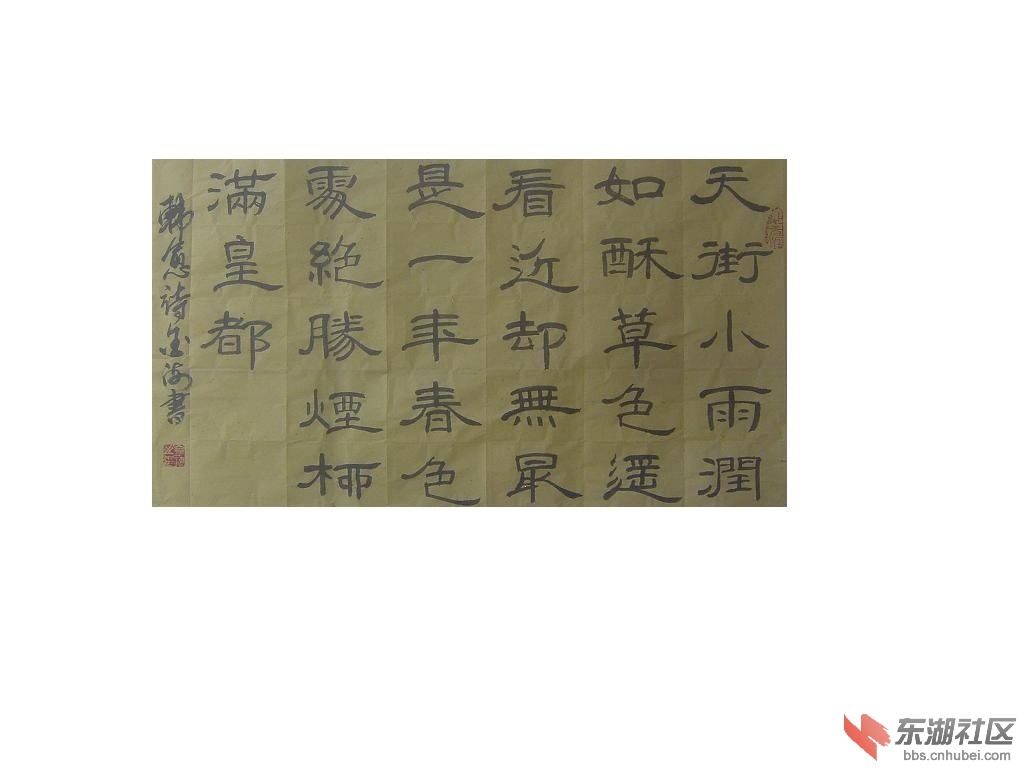 天街小雨潤
如酥草色遥
看近却無最
是一年春色
處絶勝煙柳
滿皇都
韓愈詩金海書
东湖社区
bbs.cnhubei.com